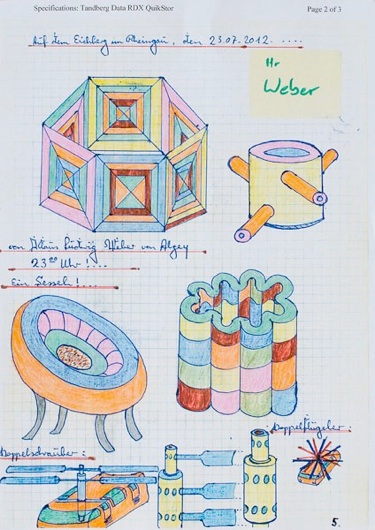 Specifications: Tandberg Data RDX QuikStor
Page 2 of 3
Auf dem Eichberg im Rheingau, den 23.07.2012. ....
Hr
Weber
von Alois Ludwig Weber von Alzey
23⁰⁰ Uhr!....
Ein Sessel!...
Doppelflügler:
Doppelschrauber:
5.